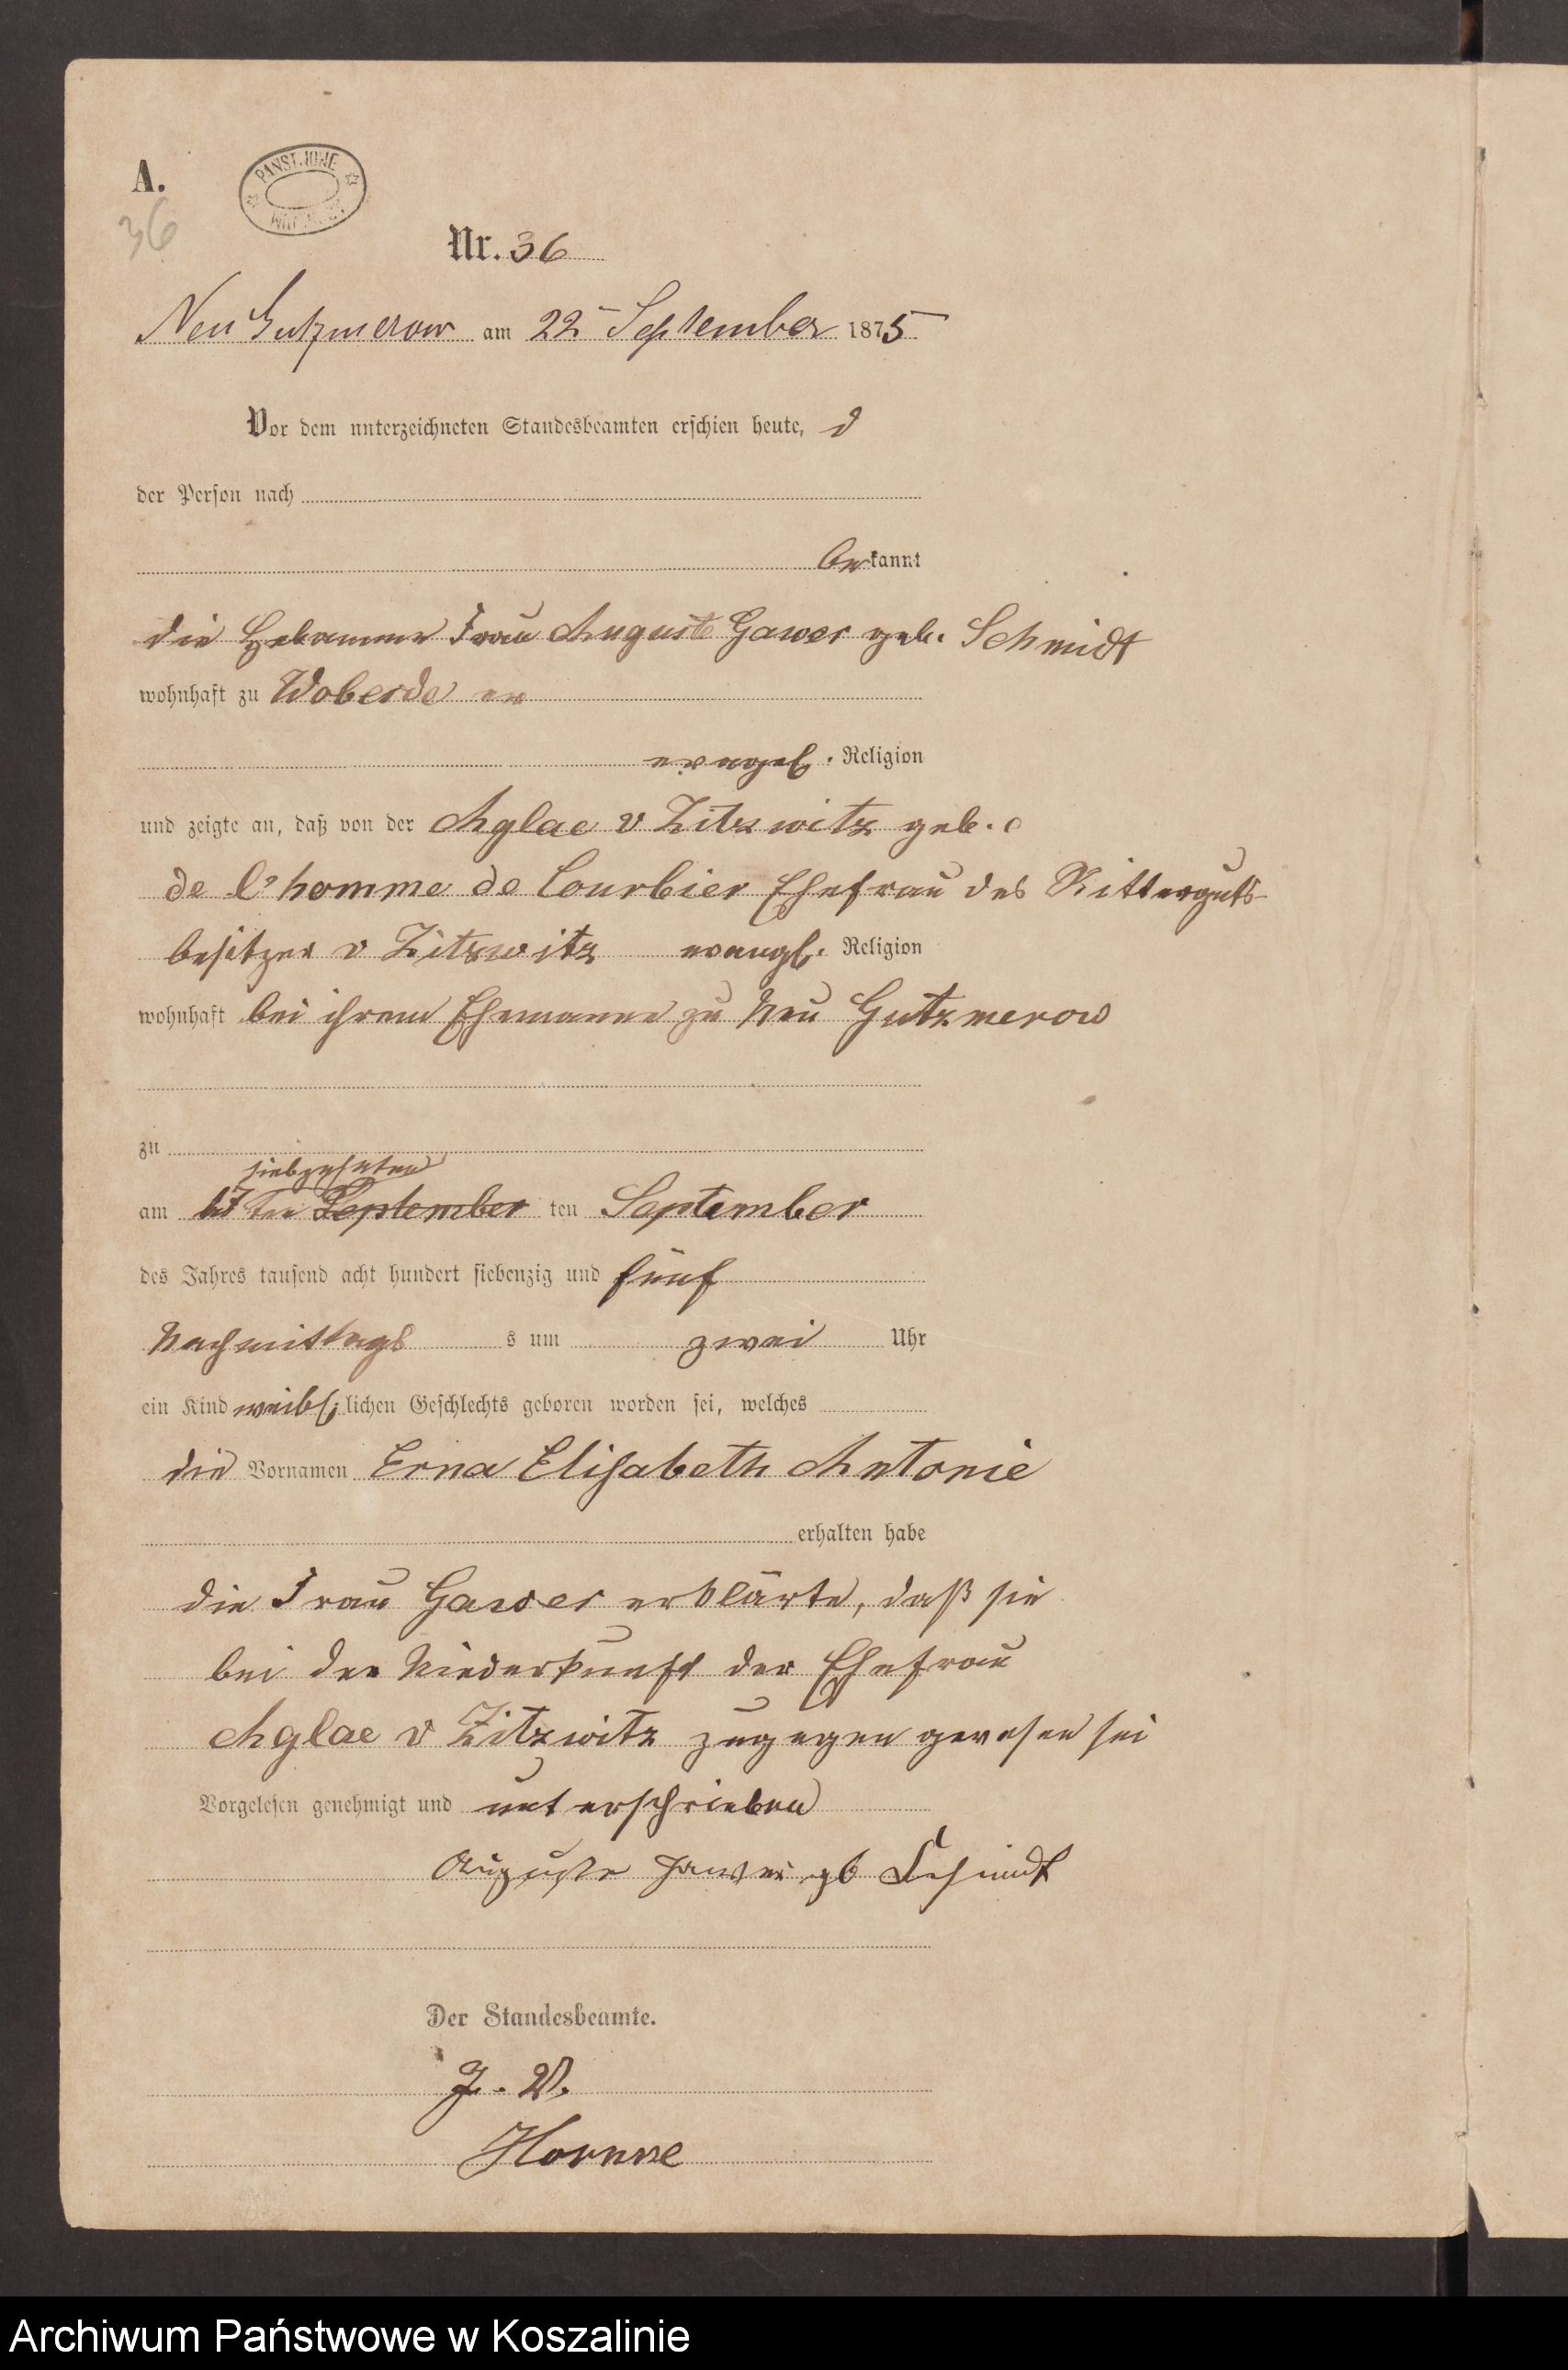 A.
36
Nr. 36
Neu Gutzmerow am 22 September 1875
Vor dem unterzeichneten Standesbeamten erschien heute, d
der Person nach
bekannt
die Hebamme Frau Auguste Gawer geb. Schmidt
wohnhaft zu Woberde
evangel. Religion
und zeigte an, daß von der Aglae v Zitzwitz geb.
de l'homme de Courbier Ehefrau des Ritterguts-
besitzer v Zitzwitz evangl. Religion
wohnhaft bei ihrem Ehemanne zu Neu Gutzmerow
zu
siebzehnten
am 17 ten September ten September
des Jahres tausend acht hundert siebenzig und fünf
Nachmittags s um zwei Uhr
ein Kind weibl. lichen Geschlechts geboren worden sei, welches
die Vornamen Erna Elisabeth Antonie
erhalten habe
die Frau Gawer erklärte, daß sie
bei der Niederkunft der Ehefrau
Aglae v Zitzwitz zugegen gewesen sei
Vorgelesen genehmigt und unterschrieben
Auguste Gawer gb Schmidt
Der Standesbeamte.
J. V.
Archiwum Państwowe w Koszalinie